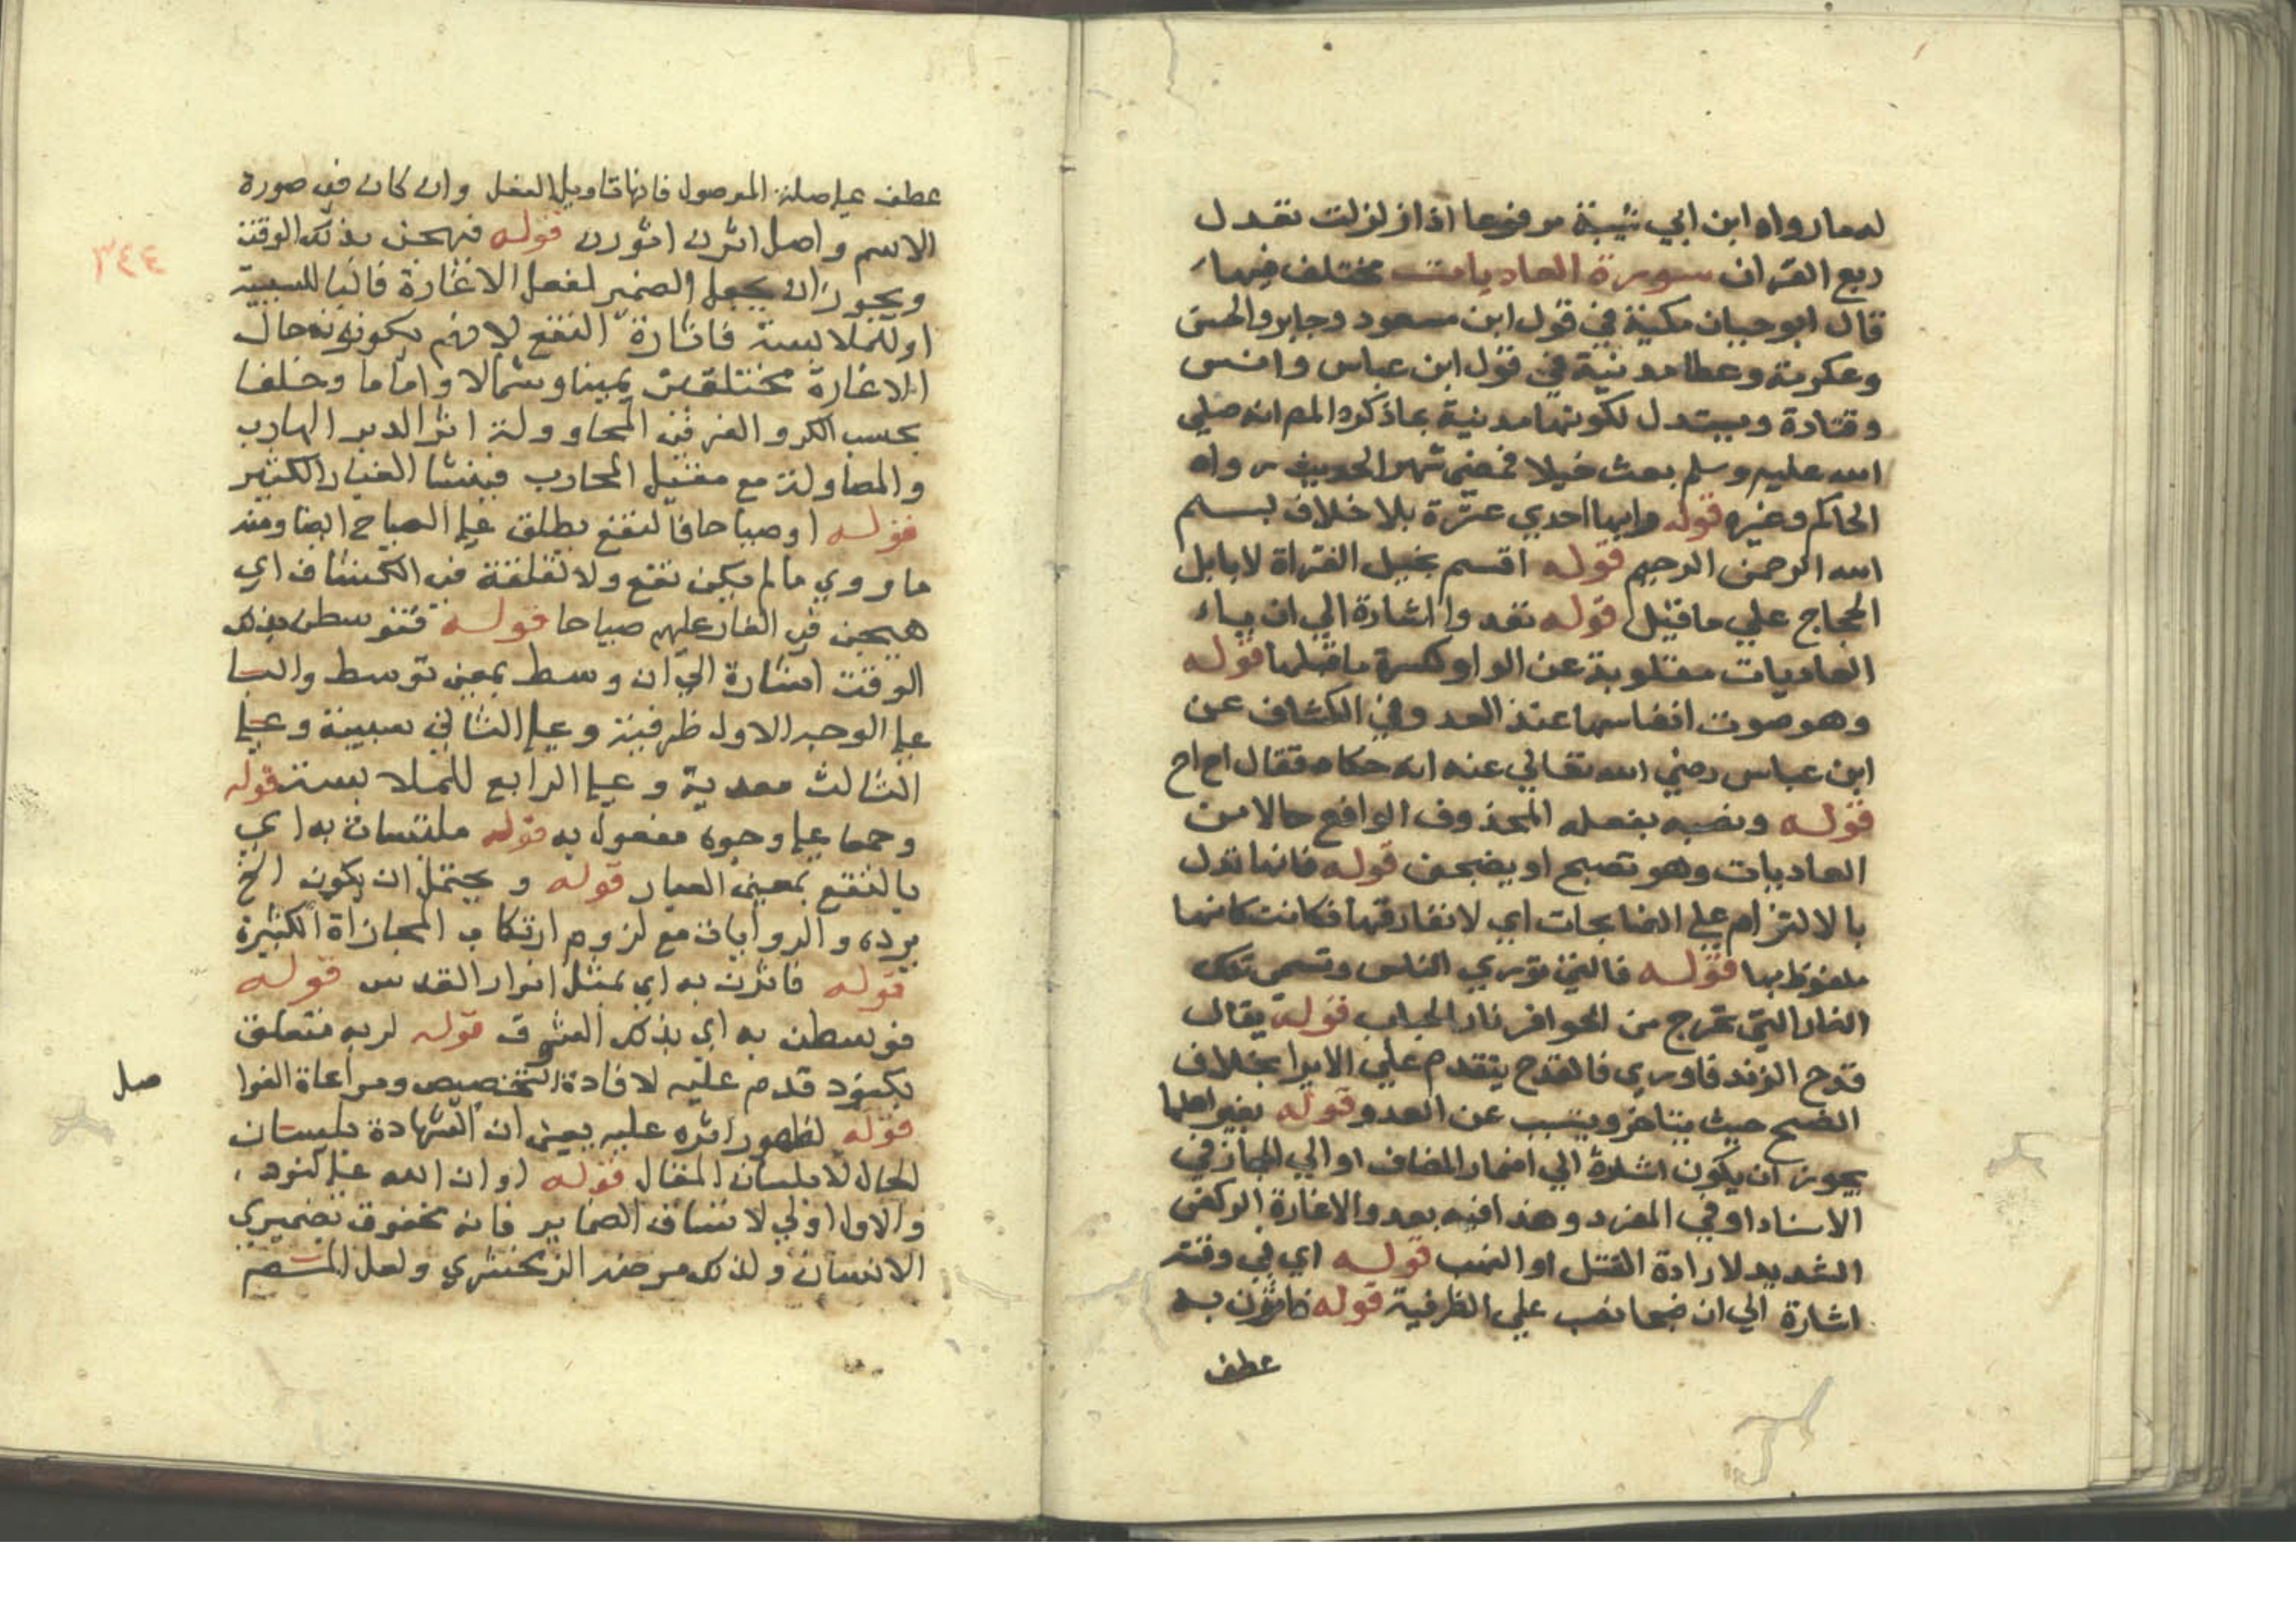 لمما رواه ابن ابي شيبة مرفوعا اذا زلزلت تعدل
ربع القران سورة العاديات مختلف فيها
قال ابو حيان مكية في قول ابن مسعود وجابر والحسن
وعكرمة وعطا مدنية في قول ابن عباس وانس
وقتادة ويستدل لكونها مدنية بما ذكره المص انه صلي
الله عليه وسلم بعث خيلا فمضى شهر الحديث رواه
الحاكم وغيره قوله وايها احدي عشرة بلا خلاف بسم
الله الرحمن الرحيم قوله اقسم بخيل الغزاة لا بابل
الحجاج علي ما قيل قوله تعدوا اشارة الي ان ياء
العاديات مقلوبة عن الواو لكسرة ما قبلها قوله
وهو صوت انفاسها عند العدو وفي الكشاف عن
ابن عباس رضي الله تعالي عنه انه حكاه فقال اح اح
قوله ونصبه بفعله المحذوف الواقع حالا من
العاديات وهو تضبح او يضبحن قوله فانها تدل
بالالتزام علي الضابحات اي لا تفارقها فكانت كانها
ملفوظ بها قوله فالتي توري الناس وتسمي تلك
النار التي تخرج من الحوافر نار الحباب قوله يقال
قدح الزند فاوري فالقدح يتقدم علي الايرا بخلاف
الضبح حيث يتاخر ويتسبب عن العدو قوله يغير اهلها
يجوز ان يكون اشارة الي اضمار المضاف او الي المجاز في
الاسناد او في المفرد وهذا فيه بعد والاغارة الركض
الشديد لارادة القتل او النهب قوله اي في وقته
اشارة الي ان صبحا نصب علي الظرفية قوله فاثرن به
عطف
عطف علي صلة الموصول فانها تاويل الفعل وان كان في صورة
الاسم واصل اثرن اثورن قوله فهيجن بذلك الوقت
ويجوز ان يجعل الضمير لفعل الاغارة فالبا للسببية
او للملابسة فاثارة النقع لا منهم بكونه حال
الاغارة مختلفين يمينا وشمالا واماما وخلفا
بحسب الكر والفر في المحاولة اثر الدبر الهارب
والمصاولة مع مقتبل المحارب فينشا الغبار الكثير
قوله او صياحا فالنقع يطلق علي الصياح ايضا ومنه
ما روي ما لم يكن نقع ولا لقلقة في الكشاف اي
هيجن في المغار عليهم صياحا قوله فتوسطن بذلك
الوقت اشارة الي ان وسط بمعنى توسط والبا
علي الوجه الاول ظرفية وعلي الثاني سببية وعلي
الثالث معدية وعلي الرابع للملابسة قوله
وجمعا علي وجوه مفعول به قوله ملتبسات به اي
بالنقع بمعنى الغبار قوله ويحتمل ان يكون الخ
يرده والروايات مع لزوم ارتكاب المجازاة الكثيرة
قوله فاثرن به اي بمثل انوار القدس قوله
فوسطن به اي بذلك الشوق قوله لربه متعلق
بكنود قدم عليه لافادة التخصيص ومراعاة الفوا
صل
قوله لظهور اثره عليه يعني ان الشهادة بلسان
الحال لا بلسان المقال قوله او ان الله علي كنود
والاول اولي لاتساق الضماير فانه محفوف بضميري
الانسان ولذلك مرضه الزمخشري ولعل المص
٣٤٤